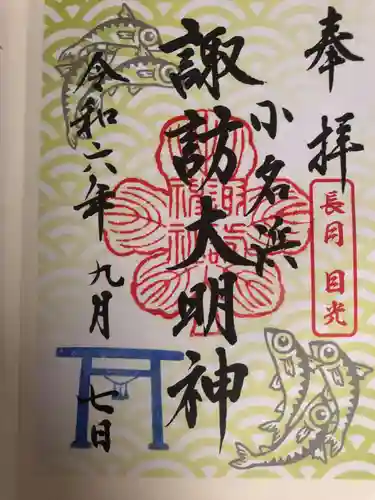 奉拝
長月 目光
小名浜
諏訪大明神
令和六年九月七日